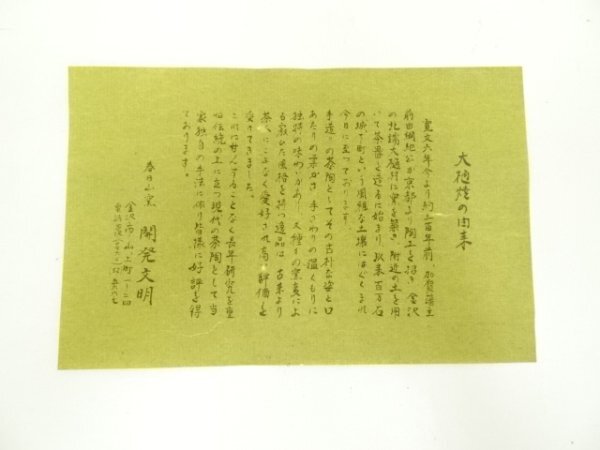 大樋焼の由来
寛文六年今より約三百年前 加賀藩主
前田綱紀公が京都より陶工を招き 金沢
の北端大樋村に窯を築き 附近の土を用
いて茶器を造るに始まり、以来百万石
の城下町という風雅な土壌にはぐくまれ
今日に至っております。
手造りの茶陶としてその古朴な姿と口
あたりの柔かさ 手ざわりの温くもりに
独特の味わいがあり、大樋の窯変によ
る寂びた風格を持つ逸品は 古来より
茶人にこよなく愛好され高い評価を
受けてきました。
これに甘んずることなく長年研究を重
ね伝統の上に立つ現代の茶陶として当
窯独自の手法に依り皆様に好評を得
ております。
春日山窯 開発文明
金沢市山上町